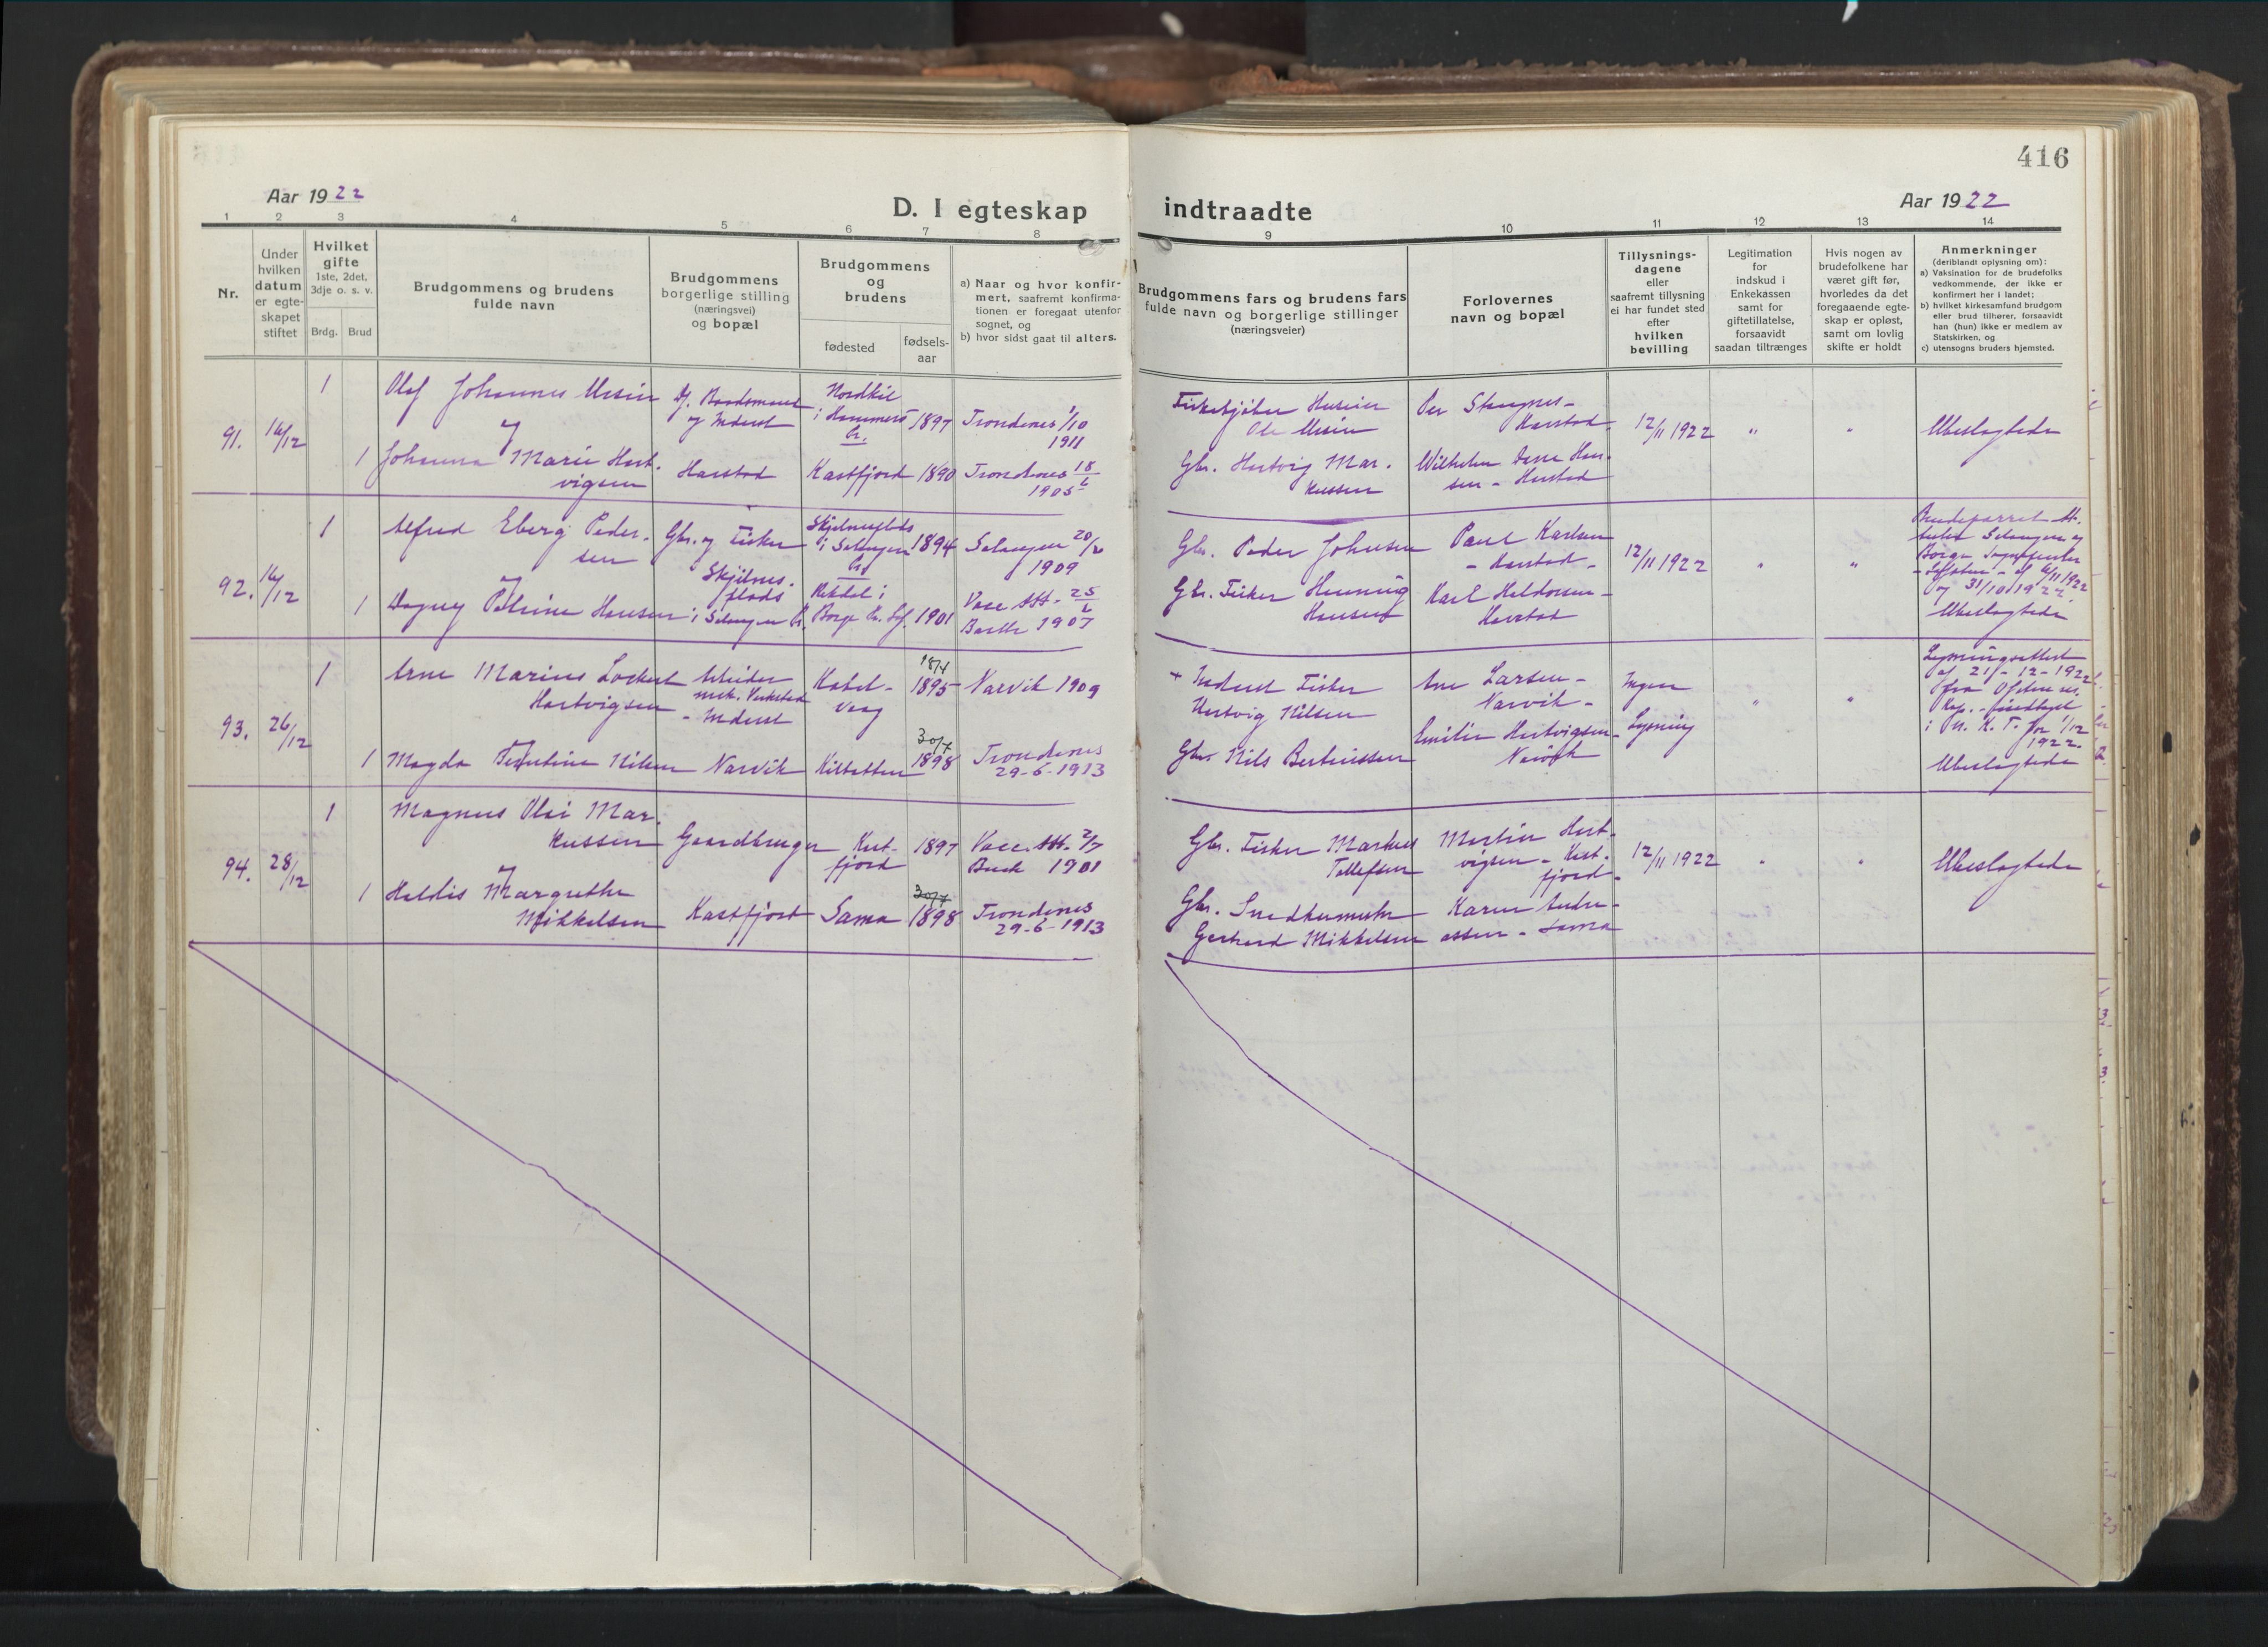 416
Aar 1922
D. I egteskap indtraadte
Aar 1922
1 2 3 4 5 6 7 8 9 10 11 12 13 14
Nr.
Under
hvilken
datum
er egte-
skapet
stiftet
Hvilket
gifte
1ste, 2det,
3dje o. s. v.
Brdg. Brud
Brudgommens og brudens
fulde navn
Brudgommens
borgerlige stilling
(næringsvei)
og bopæl
Brudgommens
og
brudens
fødested
fødsels-
aar
a) Naar og hvor konfir-
mert, saafremt konfirma-
tionen er foregaat utenfor
sognet, og
b) hvor sidst gaat til alters.
Brudgommens fars og brudens fars
fulde navn og borgerlige stillinger
(næringsveier)
Forlovernes
navn og bopæl
Tillysnings-
dagene
eller
saafremt tillysning
ei har fundet sted
efter
hvilken
bevilling
Legitimation
for
indskud i
Enkekassen
samt for
giftetillatelse,
forsaavidt
saadan tiltrænges
Hvis nogen av
brudefolkene har
været gift før,
hvorledes da det
foregaaende egte-
skap er opløst,
samt om lovlig
skifte er holdt
Anmerkninger
(deriblandt oplysning om):
a) Vaksination for de brudefolks
vedkommende, der ikke er
konfirmert her i landet;
b) hvilket kirkesamfund brudgom
eller brud tilhører, forsaavidt
han (hun) ikke er medlem av
Statskirken, og
c) utensogns bruders hjemsted.
91. 16/12
1
Olaf Johannes
og Inderst
Nordkil
i Hammerø
1897
Trondenes 1/10
1911
Ole
Per
Harstad
12/11 1922
"
"
Ubeslægtede
1
Johanna Marie Hart-
vigsen
Harstad
Kastfjord
1890
Trondenes 18/6
1905
Gbr. Hartvig Mar-
kussen
Wilhelm Dene Han-
sen - Harstad
92. 16/12
1
Alfred Eberg Peder-
sen
Gbr. og Fisker
Skjelnes-
flods
i Salangen
1894
Salangen 20/6
1909
Gbr. Peder Johnsen
Paul Karlsen
- Harstad -
12/11 1922
"
"
Brudeparret
Salangen og
Borge
6/11 1922
og 31/10 1922
Ubeslægtede
1
Dagny Petrine Hansen
i Borge
1901
Vacc. Att. 25/6
1907
Gbr. Fisker Henning
Hansen
Karl Haldorsen -
Harstad
93. 26/12
1
Arne Marius Lockert
Hartvigsen
Arbeider
mek. Verksted
- Inderst
Kabel-
vaag
18/4
1895
Narvik 1909
+ Inderst Fisker
Hartvig Nilsen
Ane Larsen -
Narvik -
Ingen
Lysning
"
"
Lysningsattest
af 21/-12-1922
fra Ofoten
1/12
1922.
Ubeslægtede
1
Magda Faustine Nilsen
Narvik
Kilbotten
30/7
1898
Trondenes
29-6-1913
Gbr. Nils Bertinussen
Emilie Hartvigsen -
Narvik
94. 28/12
1
Magnus Olai Mar-
kussen
Gaardbruger
Kast-
fjord
1897
Vacc. Att. 2/7
1901
Gbr. Fisker Markus
Tollefsen
Martin Hart-
vigsen - Kast-
fjord -
12/11 1922
"
"
Ubeslægtede
1
Haldis Margrethe
Mikkelsen
Kastfjord
Sama
30/7
1898
Trondenes
29-6-1913
Gbr. Snedkermester
Gerhard Mikkelsen
Karen Andre-
assen - Sama